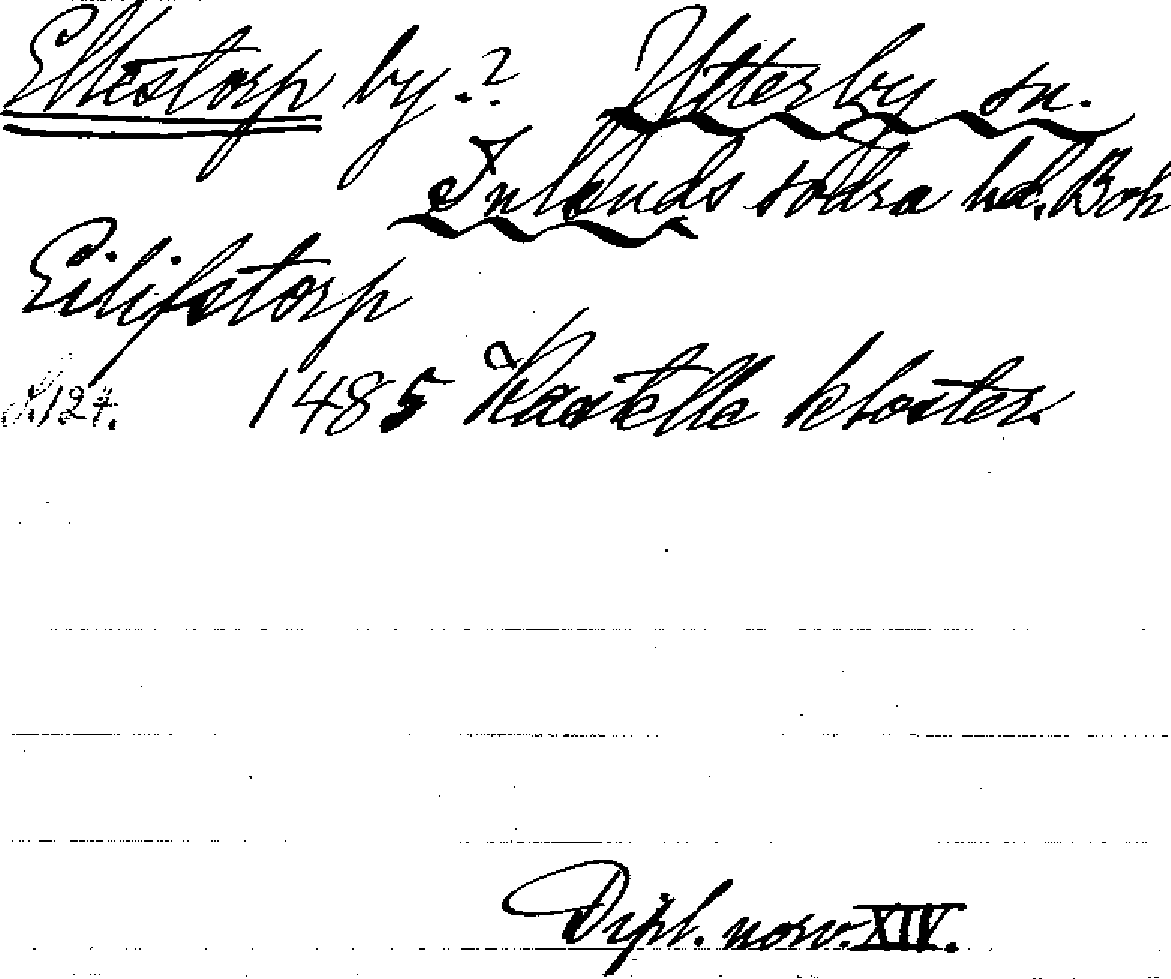 Ellestorp by.? Ytterby sn.
Inlands södra hd. Boh
Eilifstorp
S. 124. 1485 Kastelle kloster.
Dipl. norv. XIV.